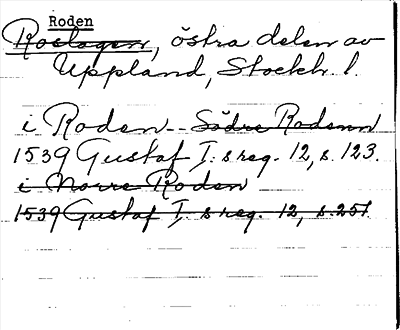 Roden
Roslagen, östra delen av
Uppland, Stockh. l.
i Roden -- Södre Rodenn
1539 Gustaf I:s reg. 12, s. 123.
i Norre Roden
1539 Gustaf I:s reg. 12, s. 257